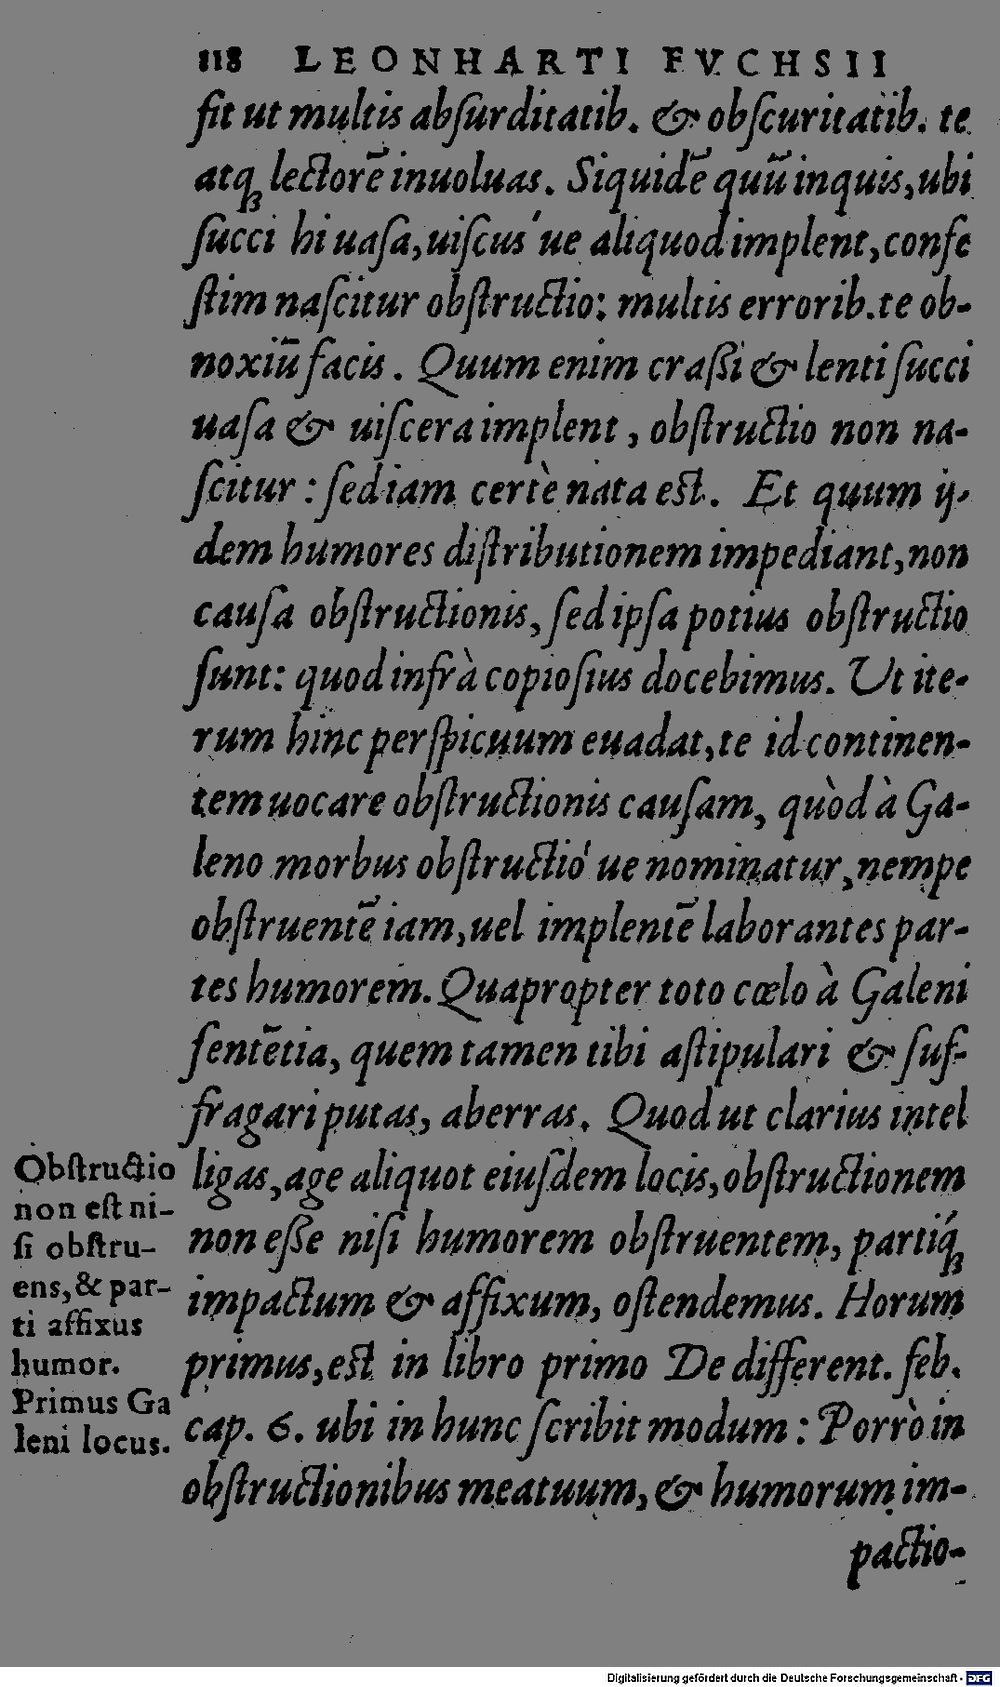 118 LEONHARTI FVCHSII
fit ut multis absurditatib. & obscuritatib. te
atq́ꝫ lectorē inuoluas. Siquidē quū inquis, ubi
succi hi uasa, uiscus´ue aliquod implent, confe
stim nascitur obstructio: multis errorib. te ob-
noxiū facis. Quum enim craßi & lenti succi
uasa & uiscera implent, obstructio non na-
scitur: sed iam certè nata est. Et quum ij-
dem humores distributionem impediant, non
causa obstructionis, sed ipsa potius obstructio
sunt: quod infrà copiosius docebimus. Ut ite-
rum hinc perspicuum euadat, te id continen-
tem uocare obstructionis causam, quòd à Ga-
leno morbus obstructio´ue nominatur, nempe
obstruentē iam, uel implentē laborantes par-
tes humorem. Quapropter toto cœlo à Galeni
sentētia, quem tamen tibi astipulari & suf-
fragari putas, aberras. Quod ut clarius intel
ligas, age aliquot eiusdem locis, obstructionem
non eße nisi humorem obstruentem, partiq́ꝫ
impactum & affixum, ostendemus. Horum
primus, est in libro primo De different. feb.
cap. 6. ubi in hunc scribit modum: Porrò in
obstructionibus meatuum, & humorum im-
pactio-
Obstructio
non est ni-
si obstru-
ens, & par-
ti affixus
humor.
Primus Ga
leni locus.
Digitalisierung gefördert durch die Deutsche Forschungsgemeinschaft - DFG